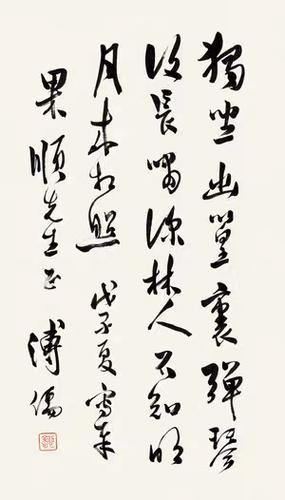 獨坐幽篁裏彈琴
復長嘯深林人不知明
月来相照 戊子夏寫奉
果順先生正 溥